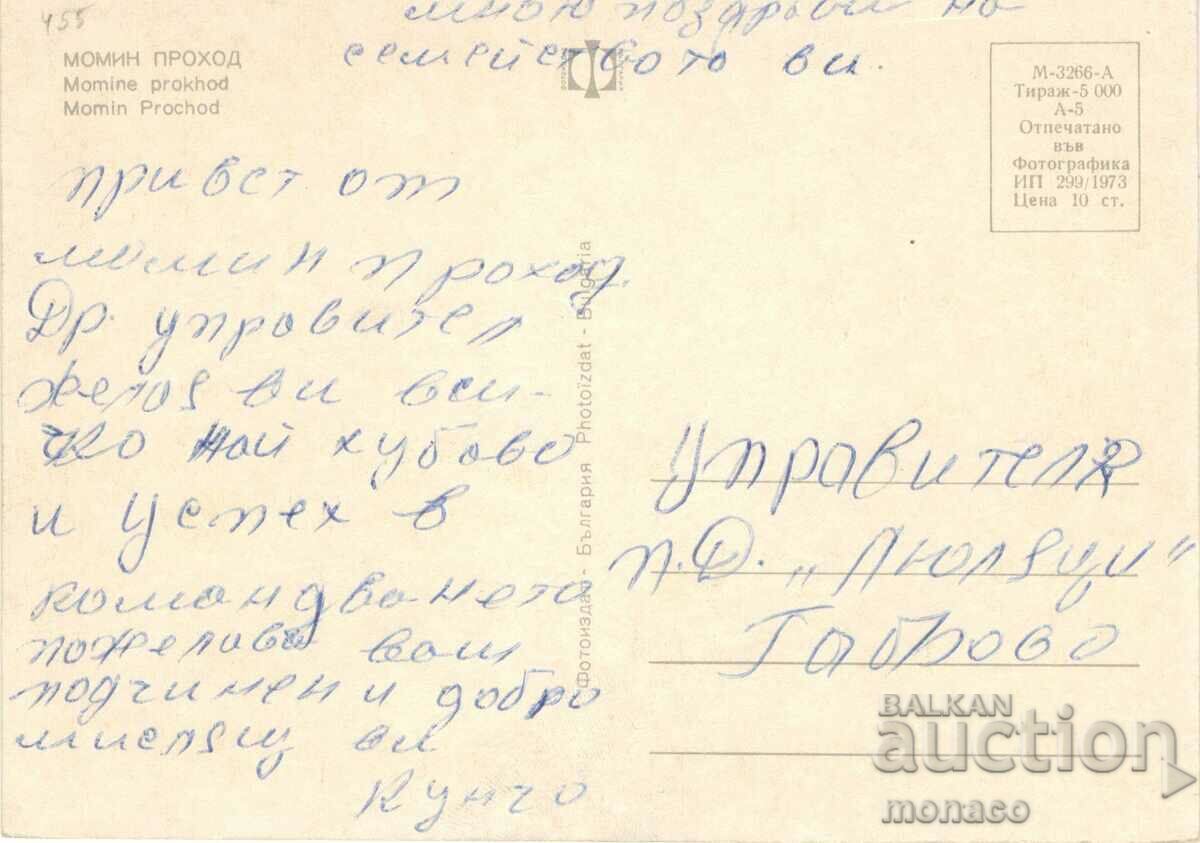 455
мною поздрави на
семейството ви.
МОМИН ПРОХОД
Momine prokhod
Momin Prochod
М-3266-А
Тираж-5 000
А-5
Отпечатано
във
Фотографика
ИП 299/1973
Цена 10 ст.
привет от
момин проход.
Др. управител
желая ви вси-
чко най хубаво
и успех в
командването
пожелава ваш
подчинен и добро
мислящ ви
Кунчо
Фотоиздат - България Photoizdat - Bulgaria
Управителя
П.Д. „Люляци"
Габрово
BALKAN
auction
monaco